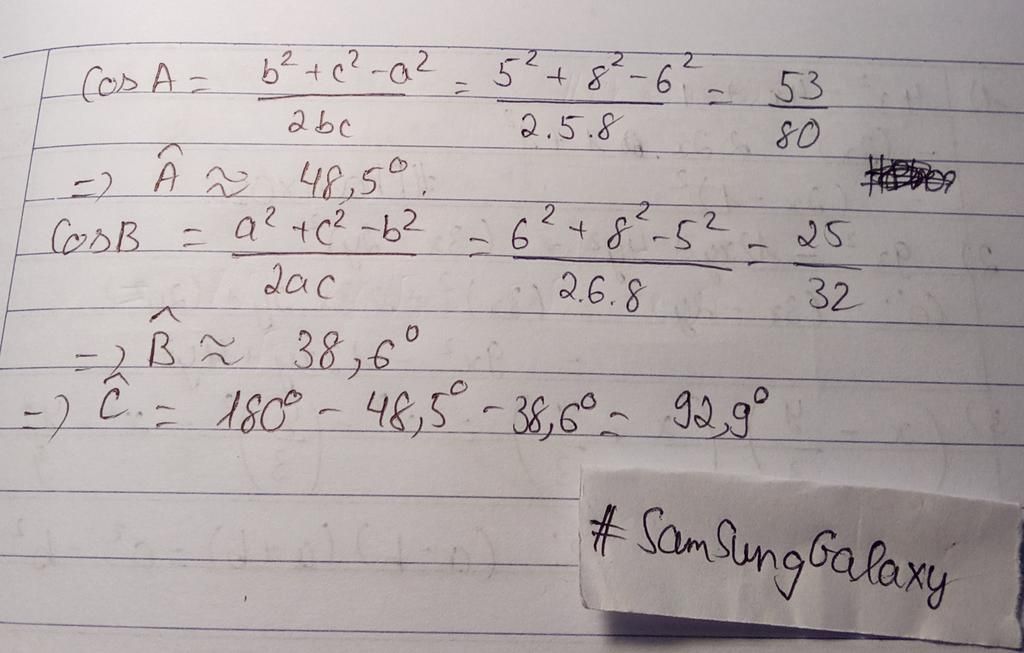 cos A = b² + c² - a² / 2bc = 5² + 8² - 6² / 2.5.8 = 53/80
=> Â ≈ 48,5°.
cos B = a² + c² - b² / 2ac = 6² + 8² - 5² / 2.6.8 = 25/32
=> B̂ ≈ 38,6°
=> Ĉ = 180° - 48,5° - 38,6° = 92,9°
# SamSungGalaxy